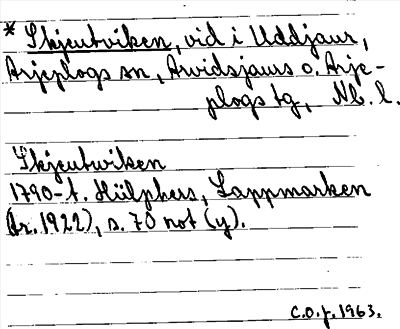 * Skjeutviken, vid i Uddjaur,
Arjeplogs sn, Arvidsjaurs o. Arje-
plogs tg, Nb. l.
Skjeutwiken
1790-t. Hülphers, Lappmarken
(tr. 1922), s. 70 not (y).
C.O.J. 1963.